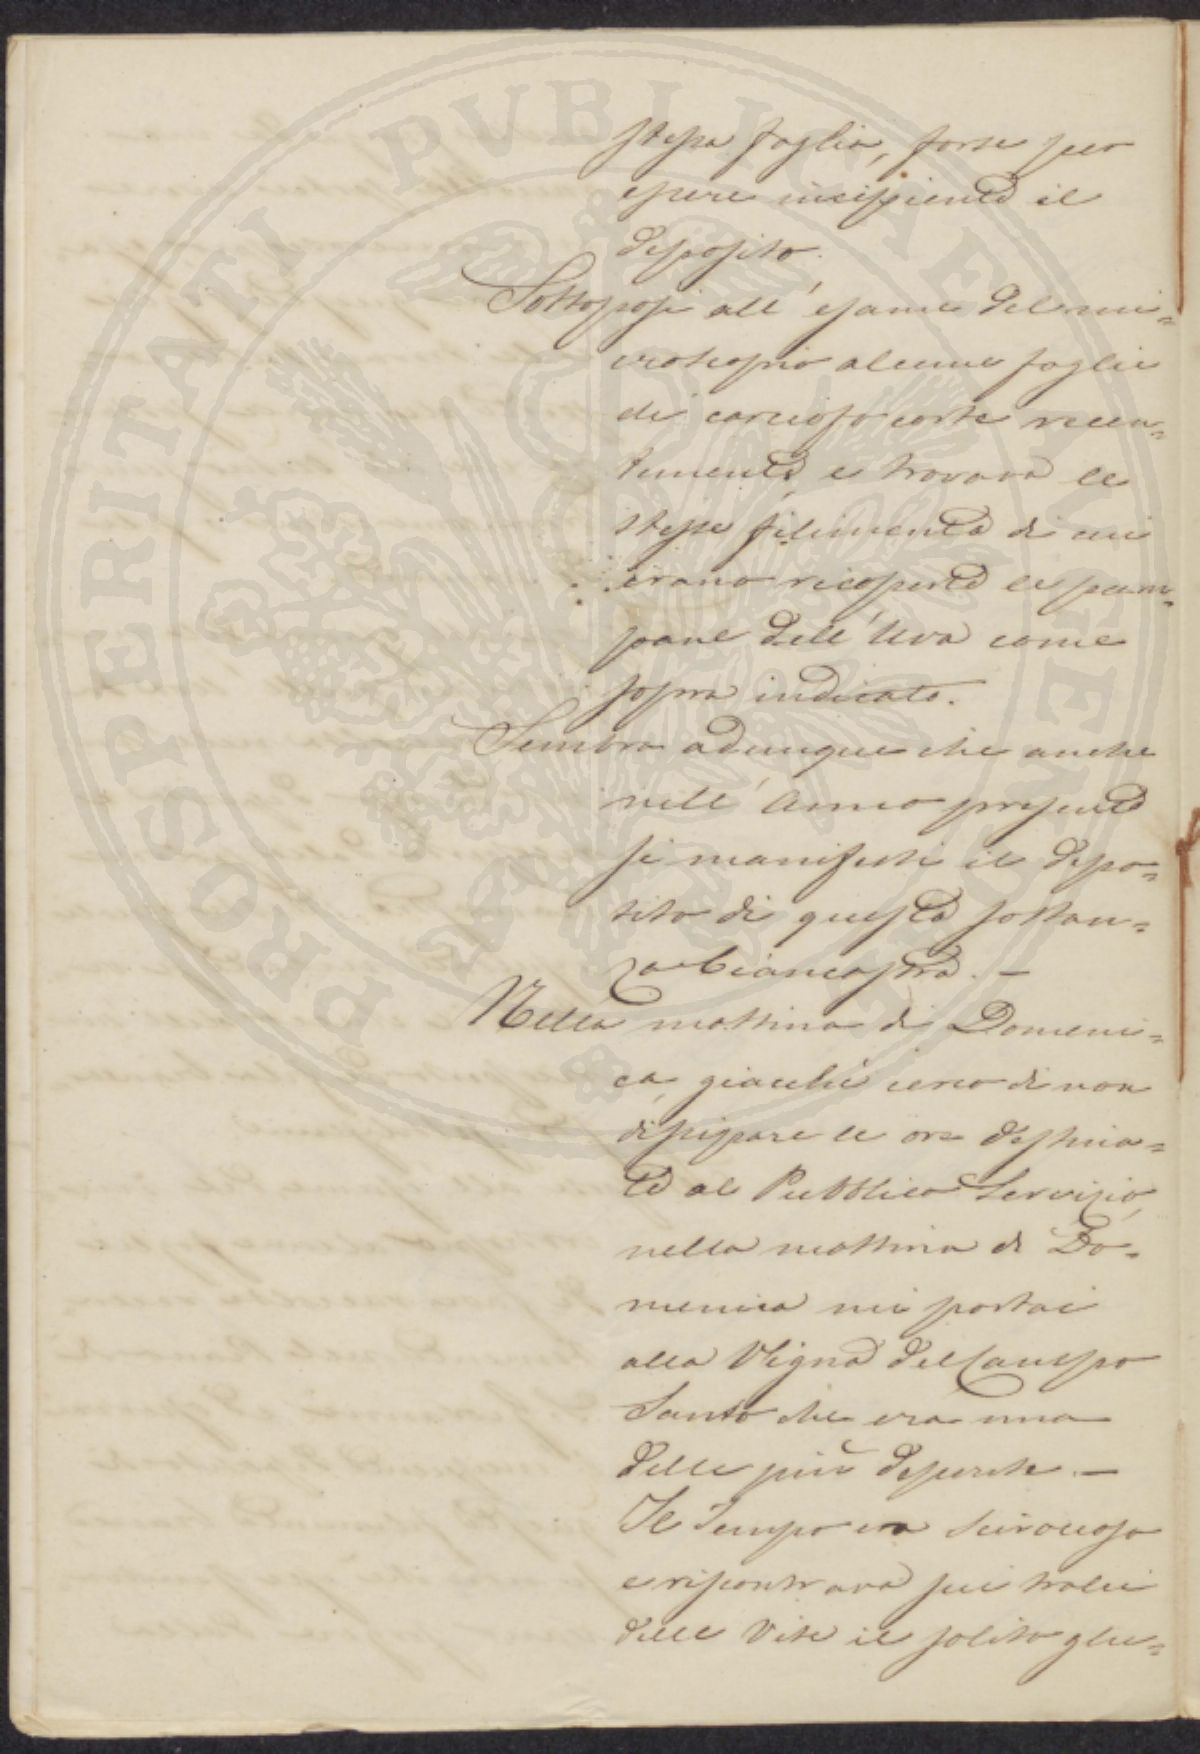 stessa foglia, forse per
essere incipiente il
deposito.
Sottoposi all'esame del mi=
croscopio alcune foglie
di carciofo corte recen=
temente, e trovava le
stesse filimenta di cui
erano ricoperte le pam=
pane dell'Uva come
sopra indicato.
Sembra adunque che anche
nell'Anno presente
si manifesti il depo=
sito di questa sostan=
za biancastra. —
Nella mattina di Domeni=
ca, giacché cerco di non
dissipare le ore destina=
te al Pubblico Servizio,
nella mattina di Do=
menica mi portai
alla Vigna del Campo
Santo che era una
delle più deperite. —
Il Tempo era sciroccoso
e riscontrava sui tralci
delle Vite il solito glu=
PROSPERITATI PVBLICAE AVGENDAE